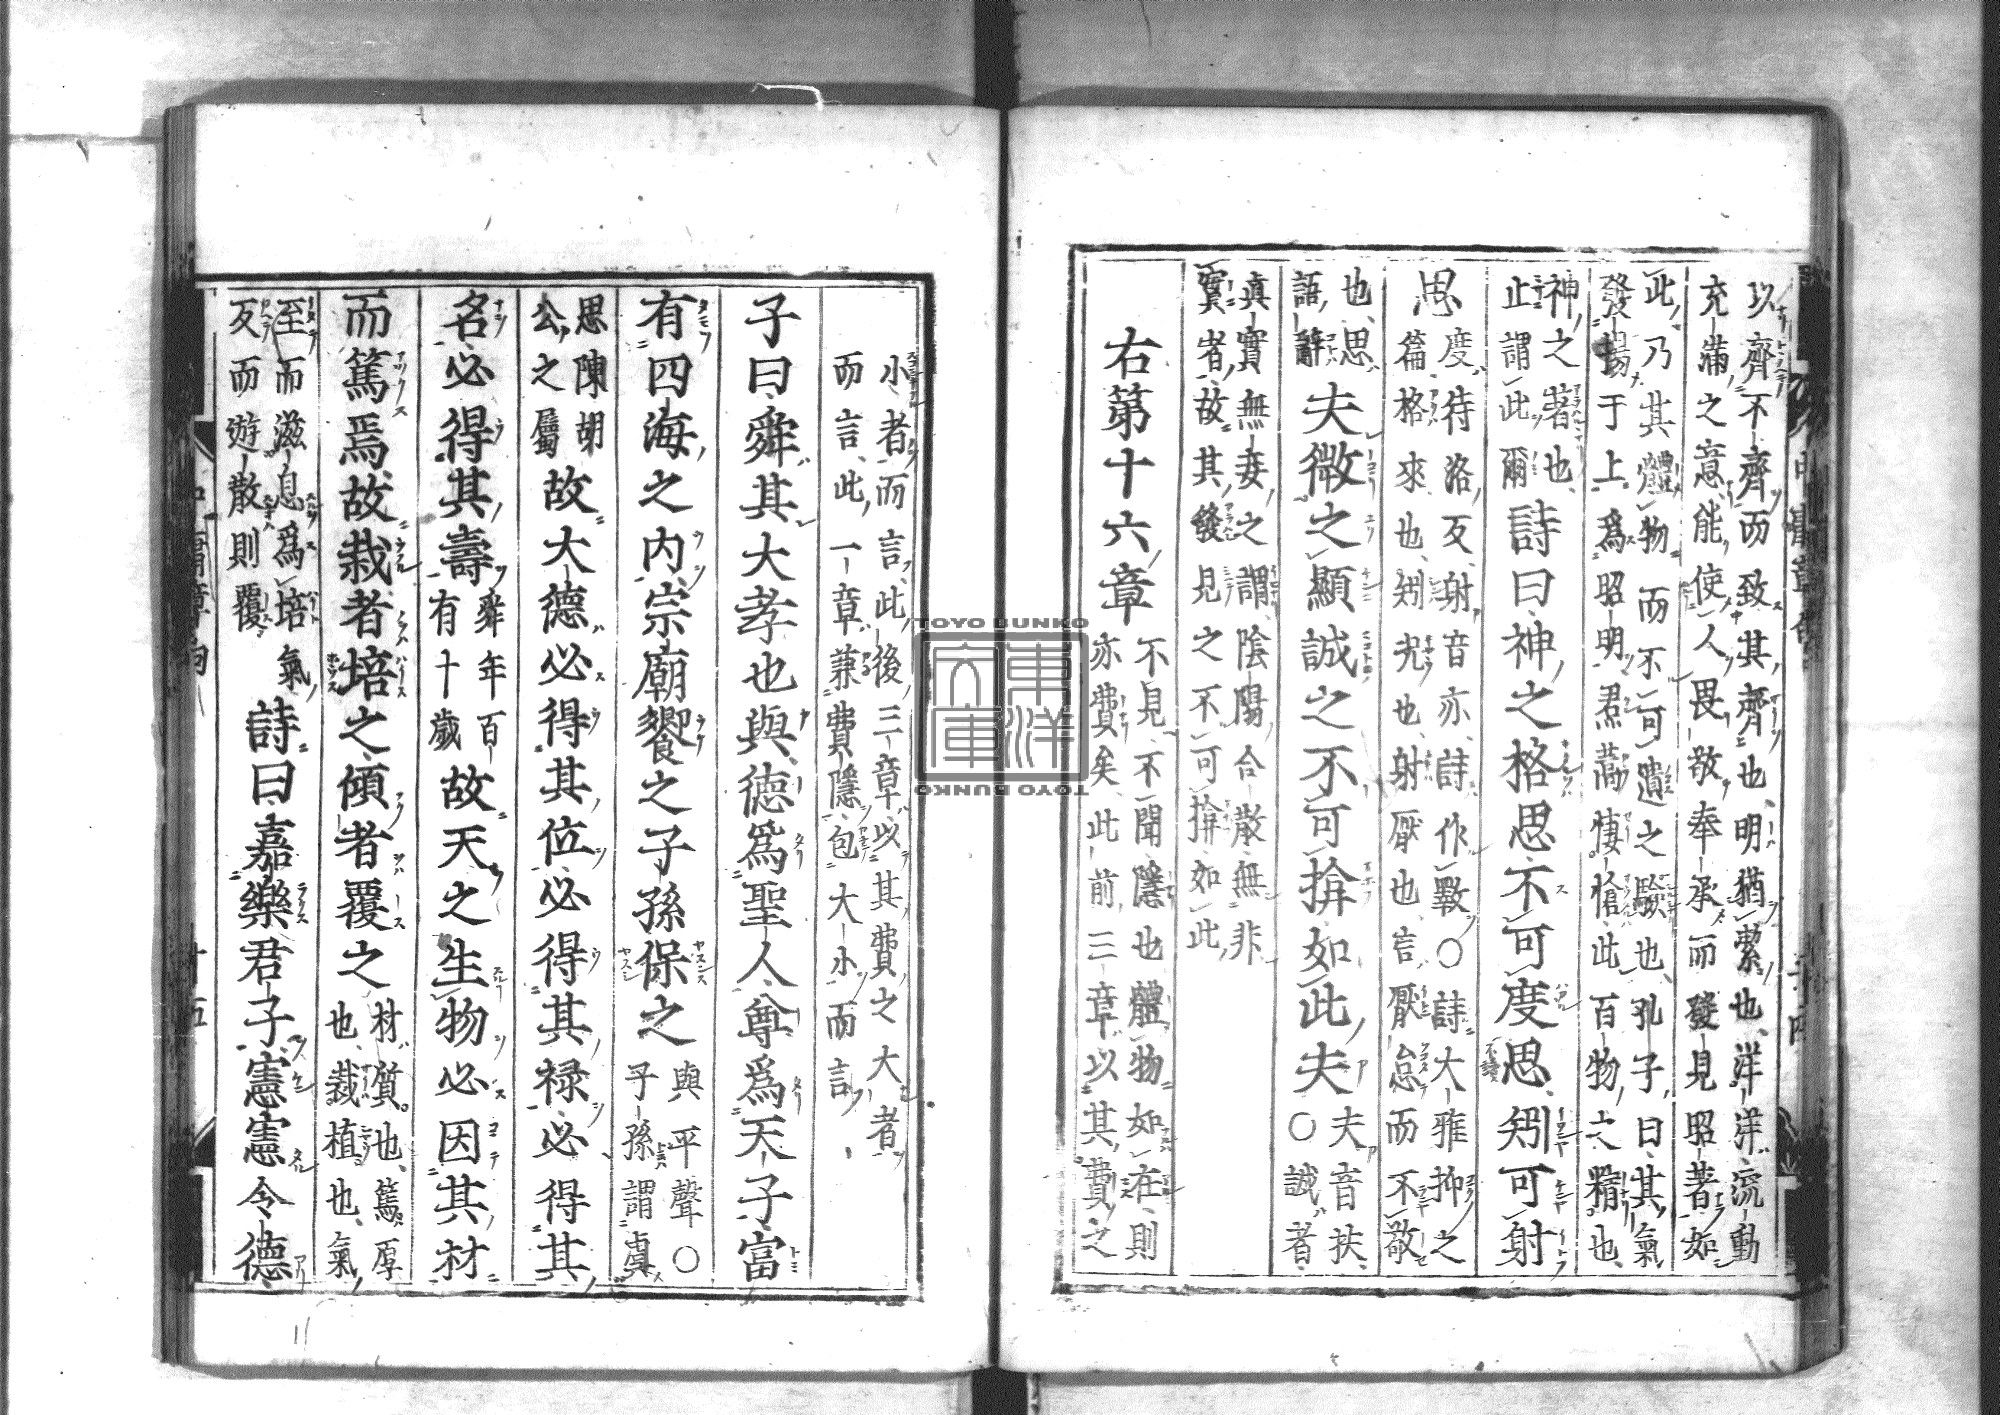 以齊不齊而致其齊也明猶潔也洋洋流動
充滿之意能使人畏敬奉承而發見昭著如
此乃其體物而不可遺之驗也孔子曰其氣
發揚于上爲昭明焄蒿悽愴此百物之精也
神之著也
止謂此爾
詩曰神之格思不可度思矧可射
思
度待洛反射音亦詩作斁○詩大雅抑之
篇格來也矧況也射厭也言厭怠而不敬
也思
語辭
夫微之顯誠之不可揜如此夫
夫音扶
○誠者
真實無妄之謂陰陽合散無非
實者故其發見之不可揜如此
右第十六章
不見不聞隱也體物如在則
亦費矣此前三章以其費之
小者而言此後三章以其費之大者
而言此一章兼費隱包大小而言
子曰舜其大孝也與德爲聖人尊爲天子富
有四海之内宗廟饗之子孫保之
與平聲○
子孫謂虞
思陳胡
公之屬
故大德必得其位必得其祿必得其
名必得其壽
舜年百
有十歲
故天之生物必因其材
而篤焉故栽者培之傾者覆之
材質也篤厚
也栽植也氣
至而滋息爲培氣
反而遊散則覆
詩曰嘉樂君子憲憲令德
中庸章句
十五
TOYO BUNKO
東洋文庫
TOYO BUNKO